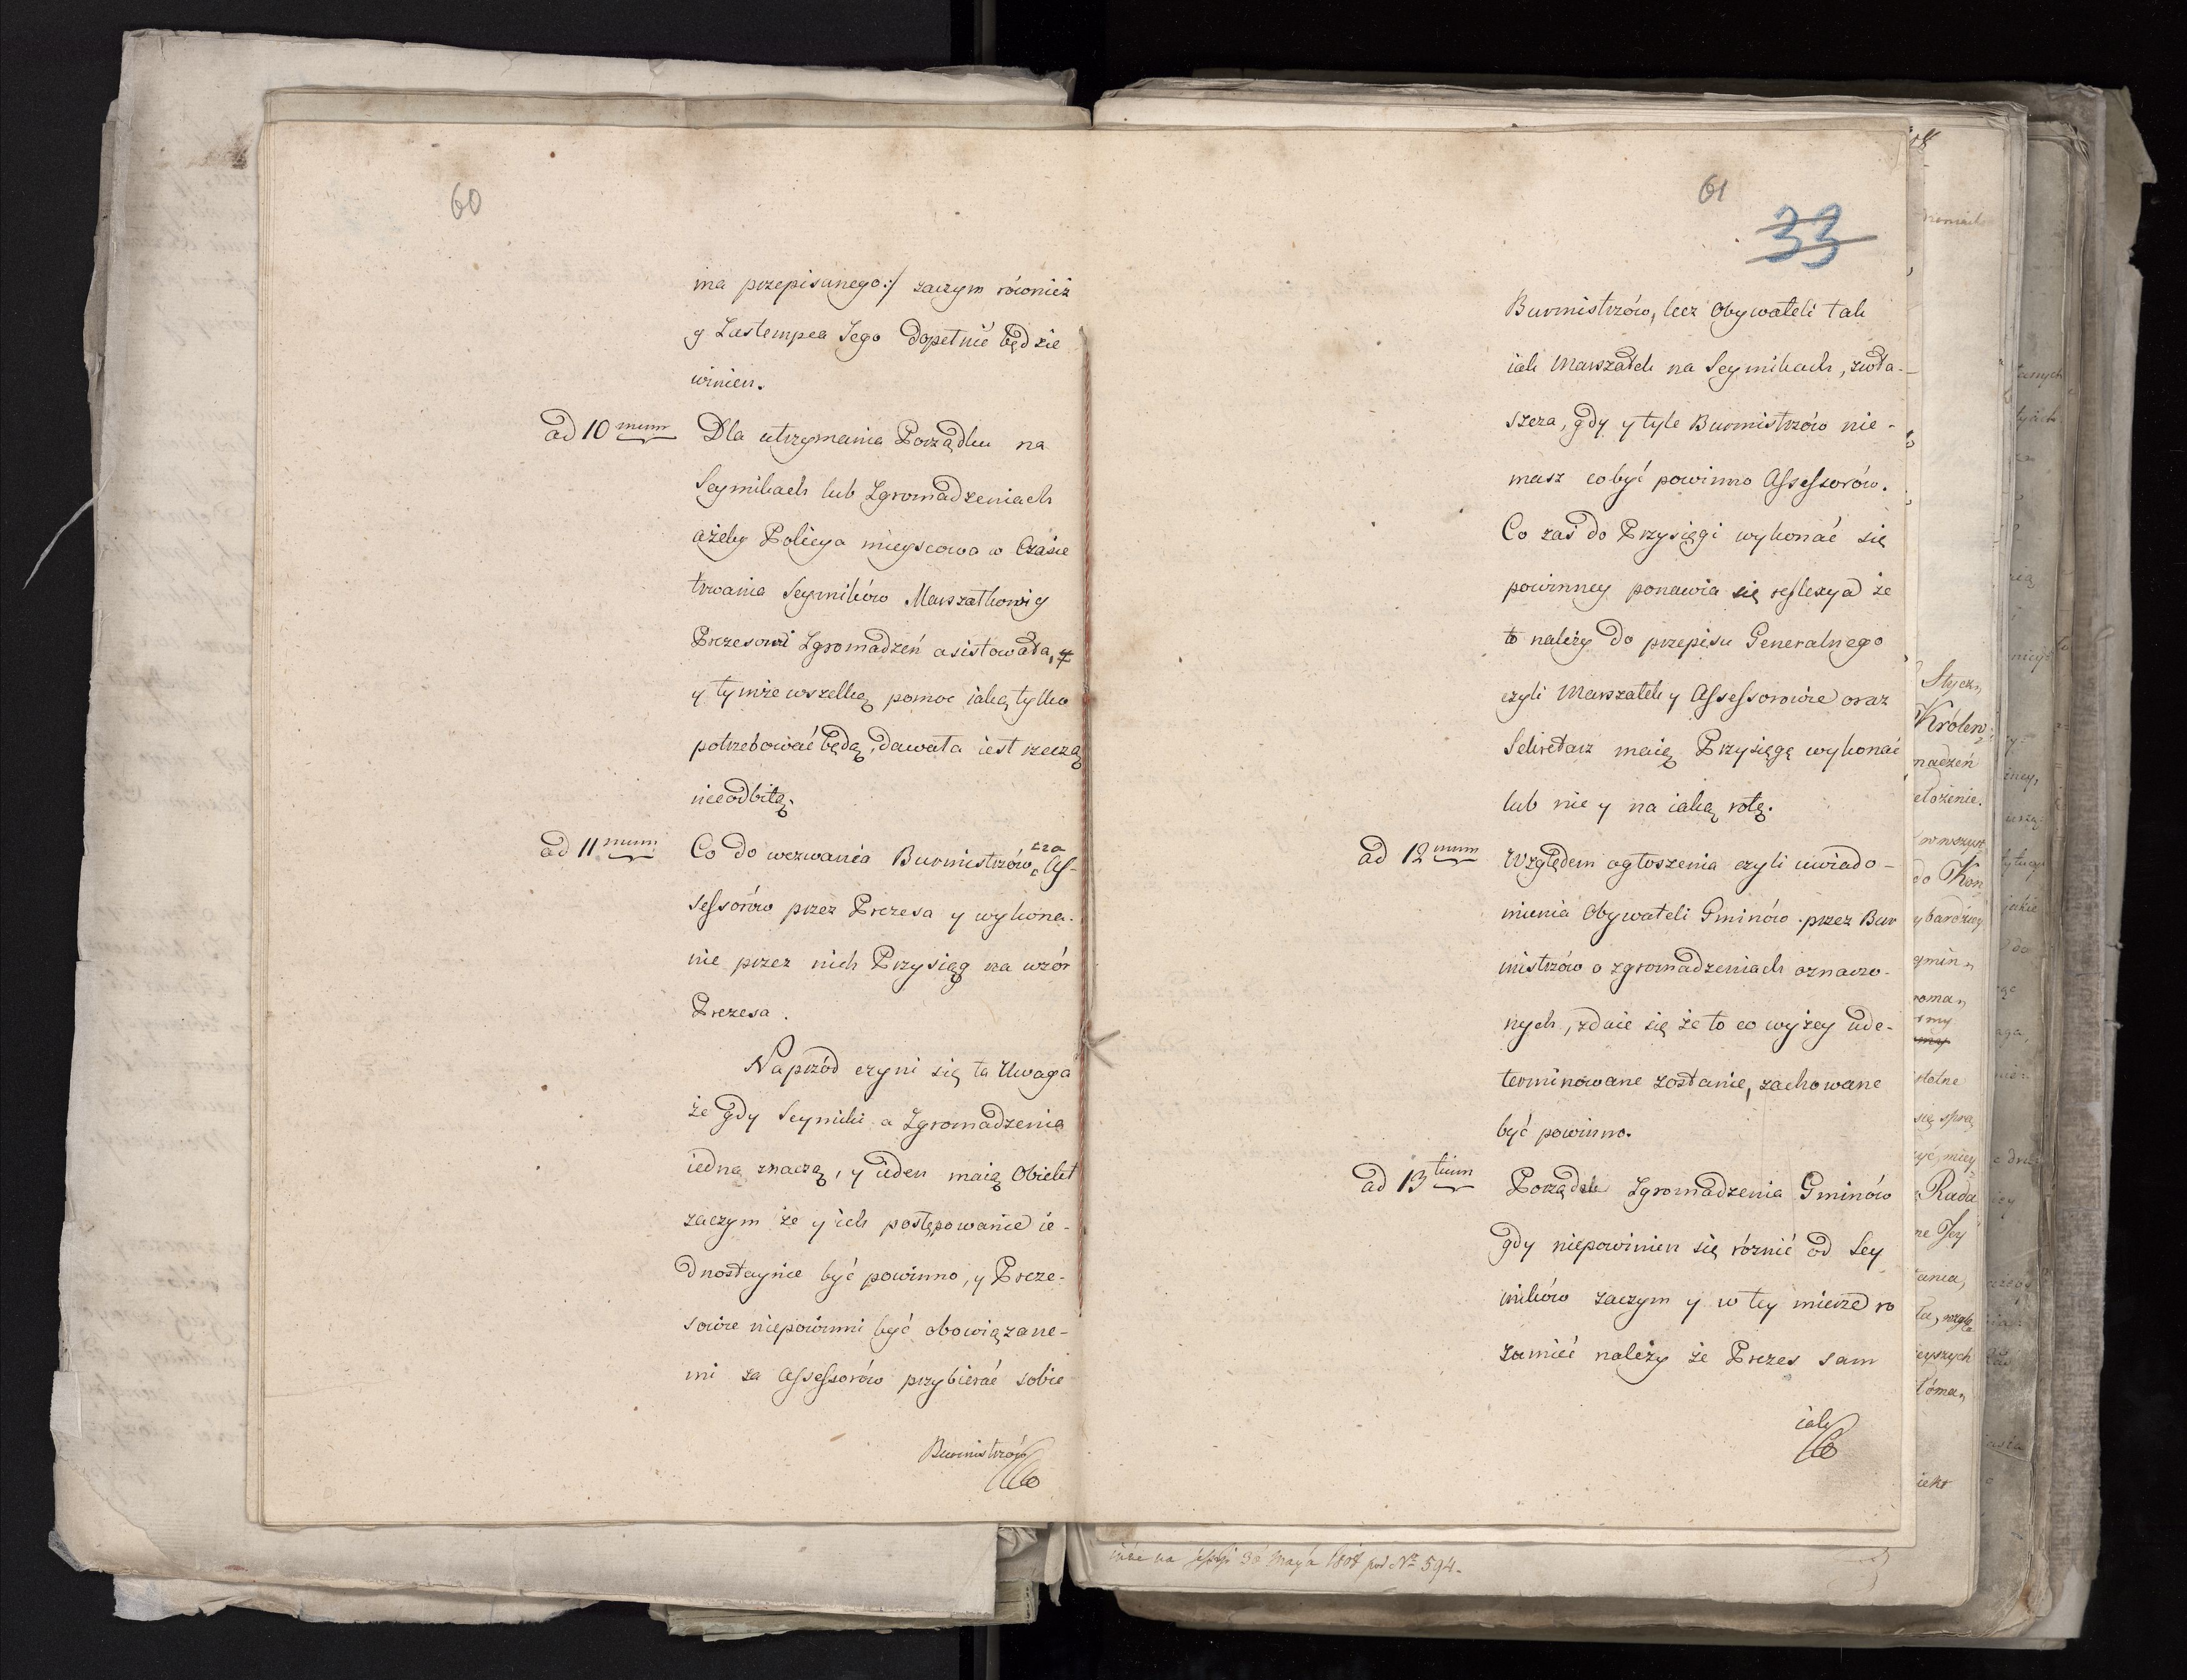 60
ma przepisanego:/ zaczym również
y Zastempca Jego dopełnić będzie
winien.
ad 10 mum Dla utrzymania Porządku na
Seymikach lub Zgromadzeniach
ażeby Policya mieyscowa w Czasie
trwania Seymików Marszałkowi y
Prezesowi Zgromadzeń asistowała,
y tymże wszelką pomoc iaką tylko
potrzebować będą, dawała iest rzeczą
nieodbitą.
ad 11 mum Co do wezwania Burmistrzów za As-
sessorów przez Prezesa y wykona-
nie przez nich Przysiąg na wzór
Prezesa.
Naprzód czyni się ta Uwaga
że gdy Seymiki a Zgromadzenia
iedno znaczą, y ieden maią Obiekt
zaczym że y ich postępowanie ie-
dnostaynie być powinno, y Preze-
sowie niepowinni być obowiązane-
mi za Assessorów przybierać sobie
Burmistrzów
61
33
Burmistrzów, lecz Obywateli tak
iak Marszałek na Seymikach, zwła-
szcza, gdy y tyle Burmistrzów nie-
masz co być powinno Assessorów.
Co zaś do Przysięgi wykonać się
powinney ponawia się reflexya że
to należy do przepisu Generalnego
czyli Marszałek y Assessorowie oraz
Sekretarz maią Przysięgę wykonać
lub nie y na iaką rotę.
ad 12 mum Względem ogłoszenia czyli uwiado-
mienia Obywateli Gminów przez Bur
mistrzów o zgromadzeniach oznaczo-
nych, zdaie się że to co wyżey ude-
terminowane zostanie, zachowane
być powinno.
ad 13 tium Porządek Zgromadzenia Gminów
gdy niepowinien się różnić od Sey
mików zaczym y w tey mierze ro
zumieć należy że Prezes sam
iak
na sessyi 30 Maya 1808 pod Nr 594.